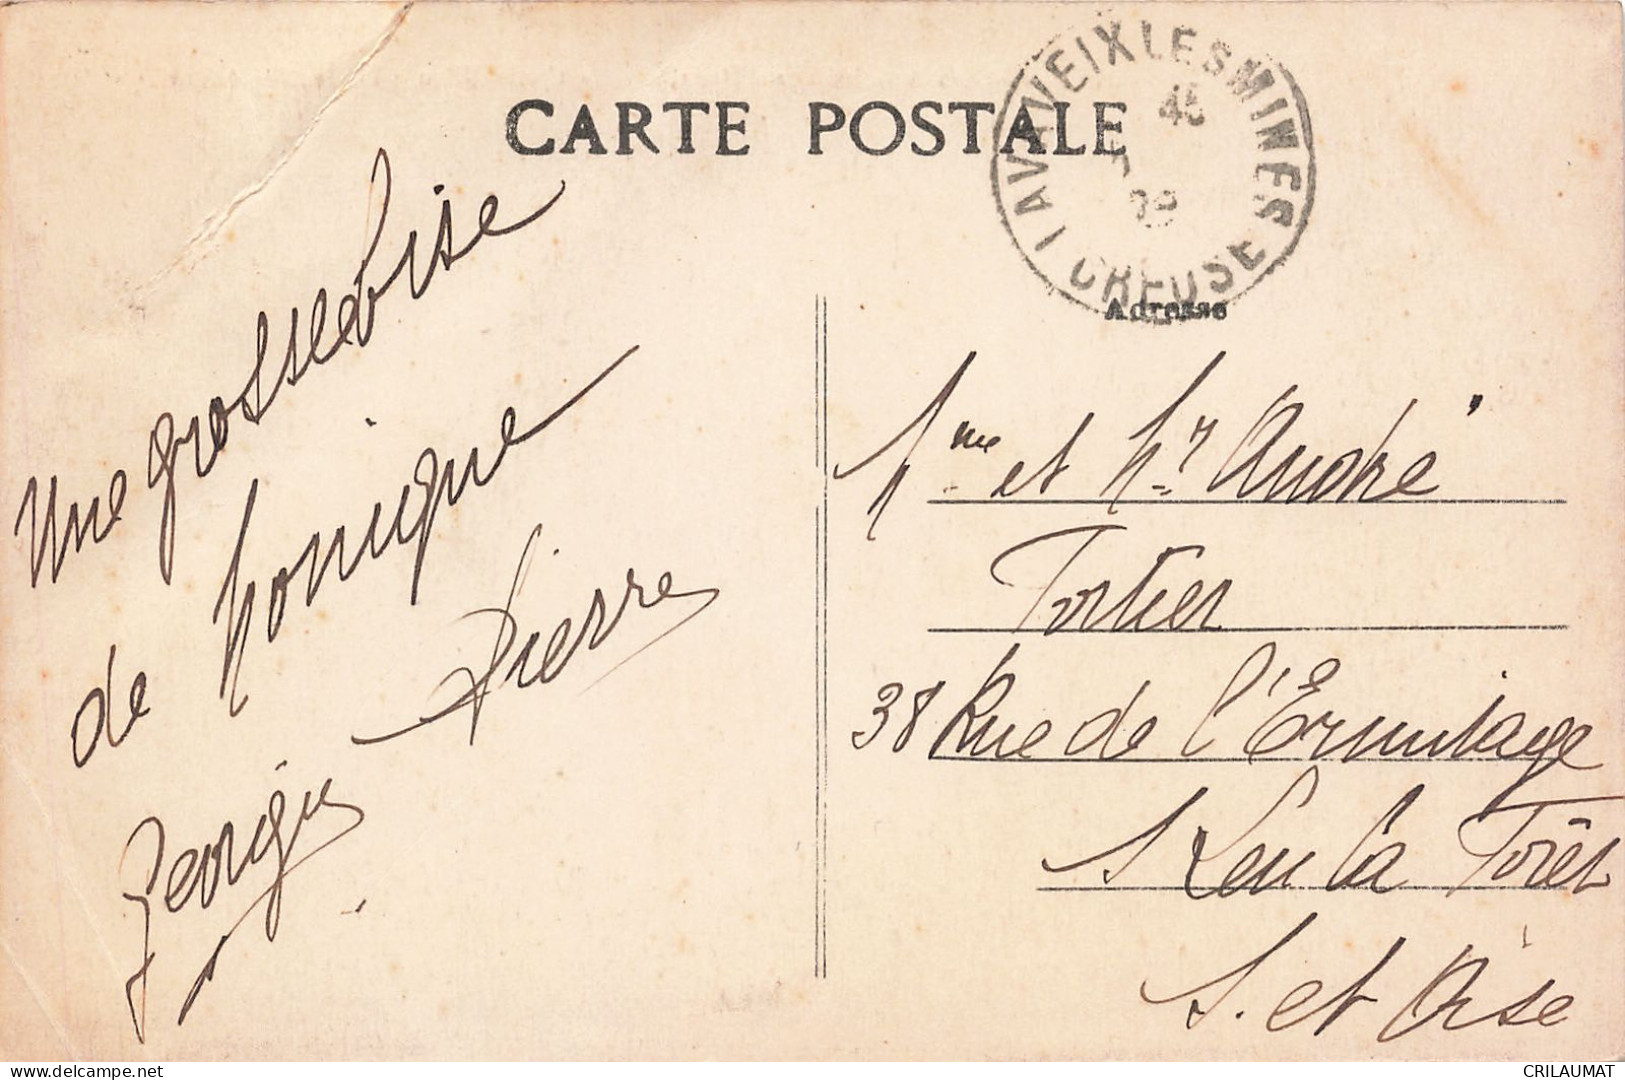 CARTE POSTALE
LAVAVEIX LES MINES
45
CREUSE
Adresse
Une grosse bise
de Monique
Pierre
Georgie
Mme et Mr André
Fortier
38 Rue de l'Ermitage
St Leu la Forêt
S. et Oise
www.delcampe.net
CRILAUMAT